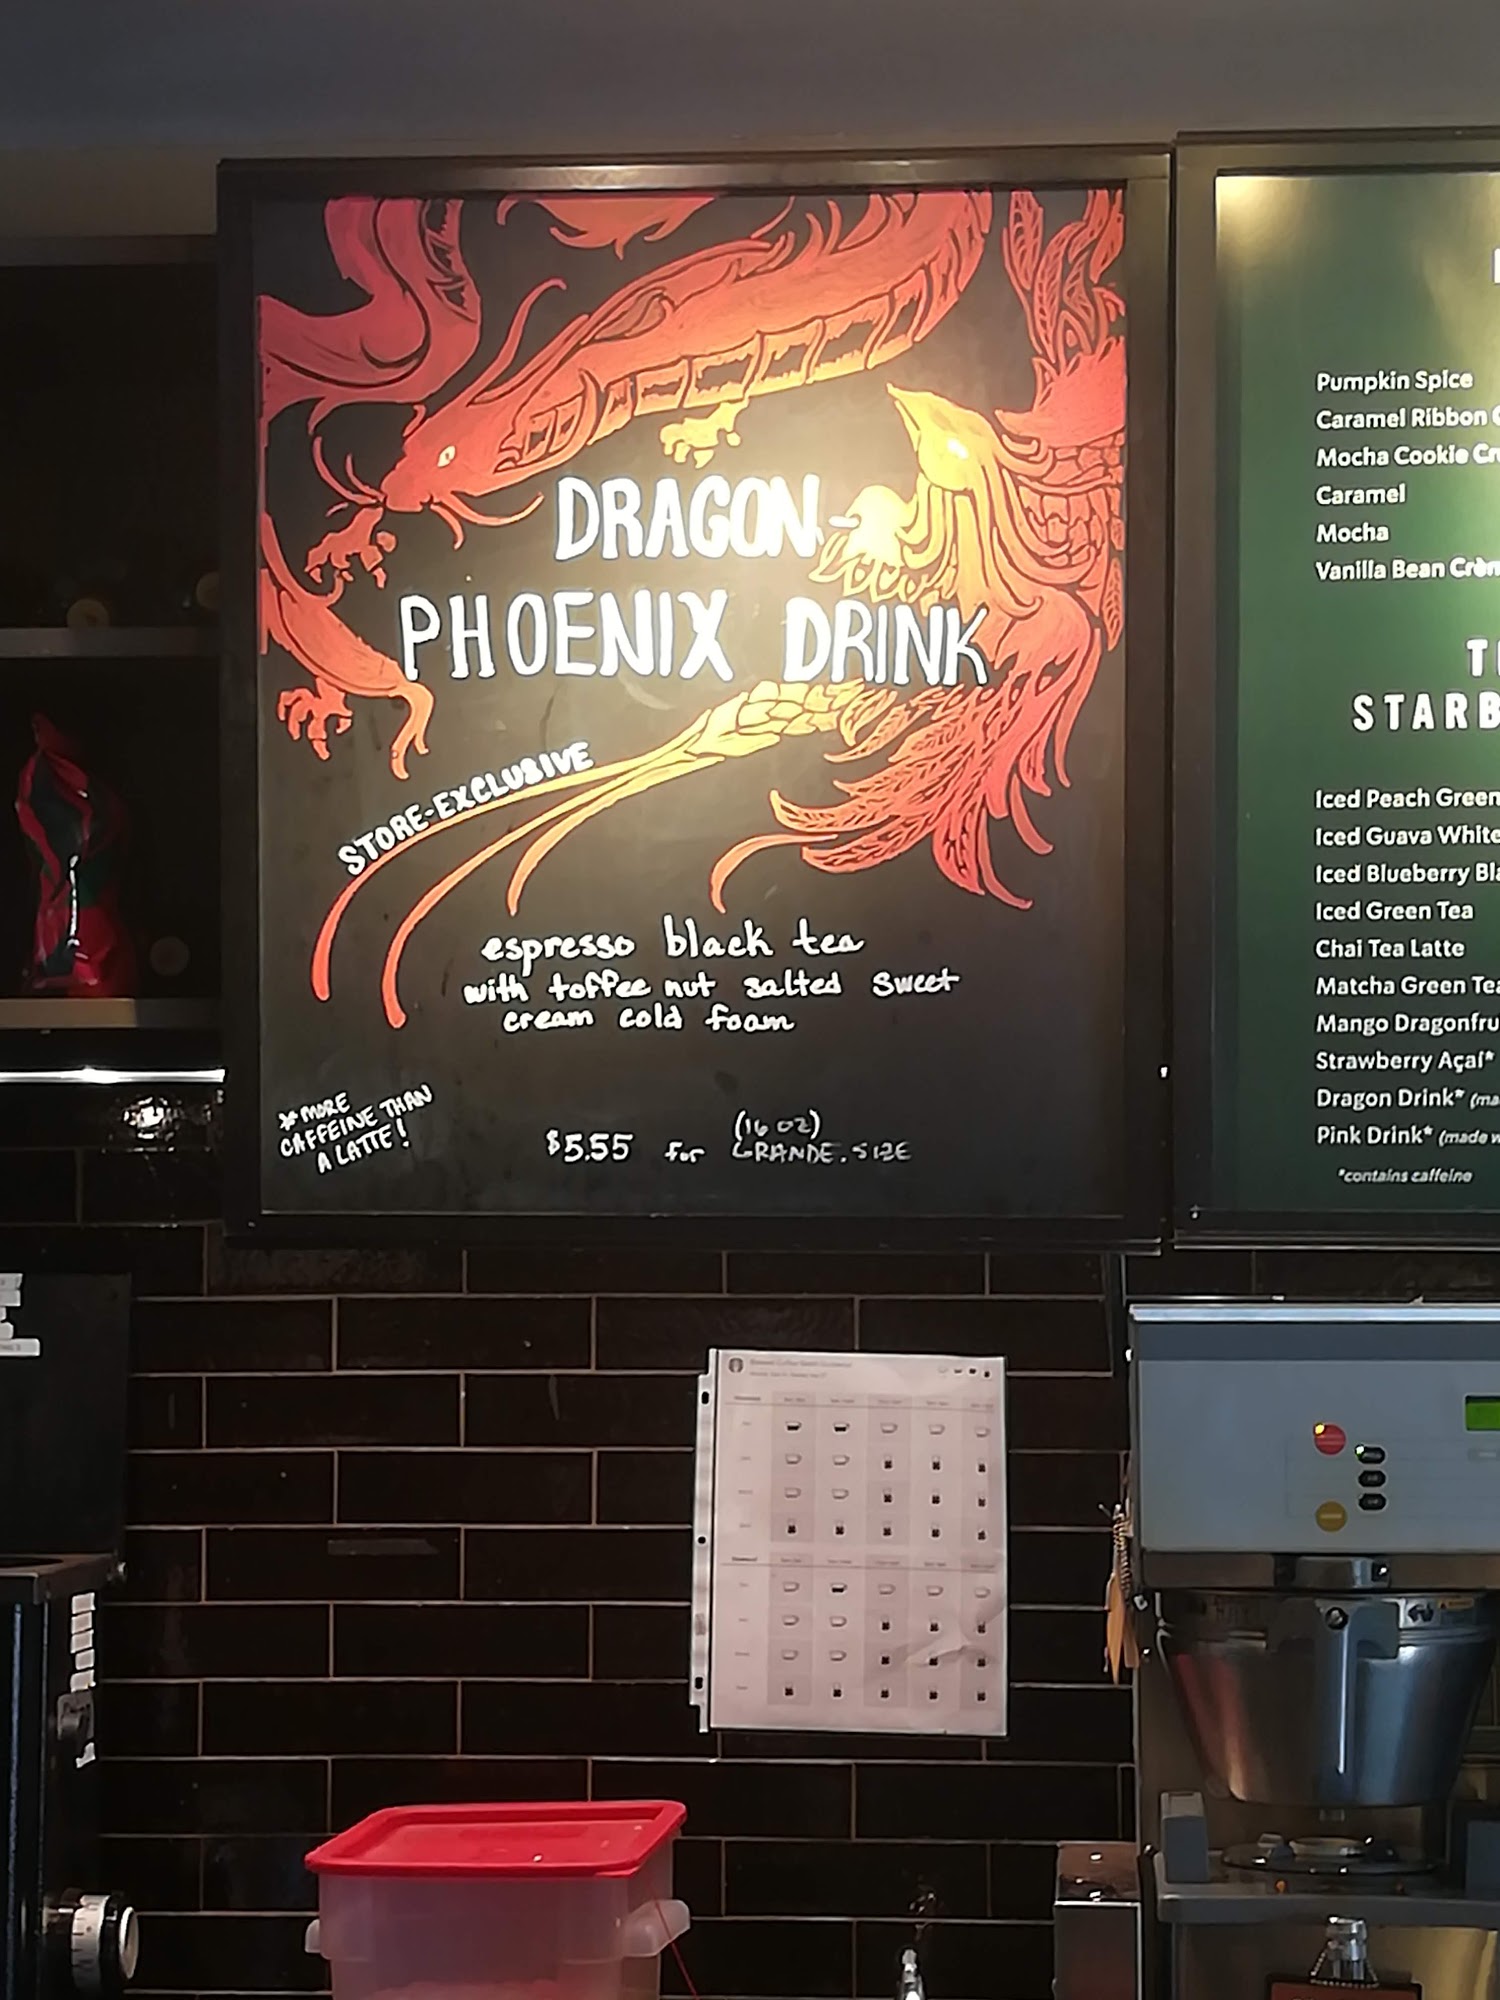 DRAGON-
PHOENIX DRINK
STORE-EXCLUSIVE
espresso black tea
with toffee nut salted sweet
cream cold foam
*MORE
CAFFEINE THAN
A LATTE!
$5.55 for (16 oz)
GRANDE.SIZE
Pumpkin Spice
Caramel Ribbon
Mocha Cookie
Caramel
Mocha
Vanilla Bean Crèm
STARB
Iced Peach Green
Iced Guava White
Iced Blueberry
Iced Green Tea
Chai Tea Latte
Matcha Green Tea
Mango Dragonfru
Strawberry Açaí*
Dragon Drink* (ma
Pink Drink* (made w
*contains caffeine